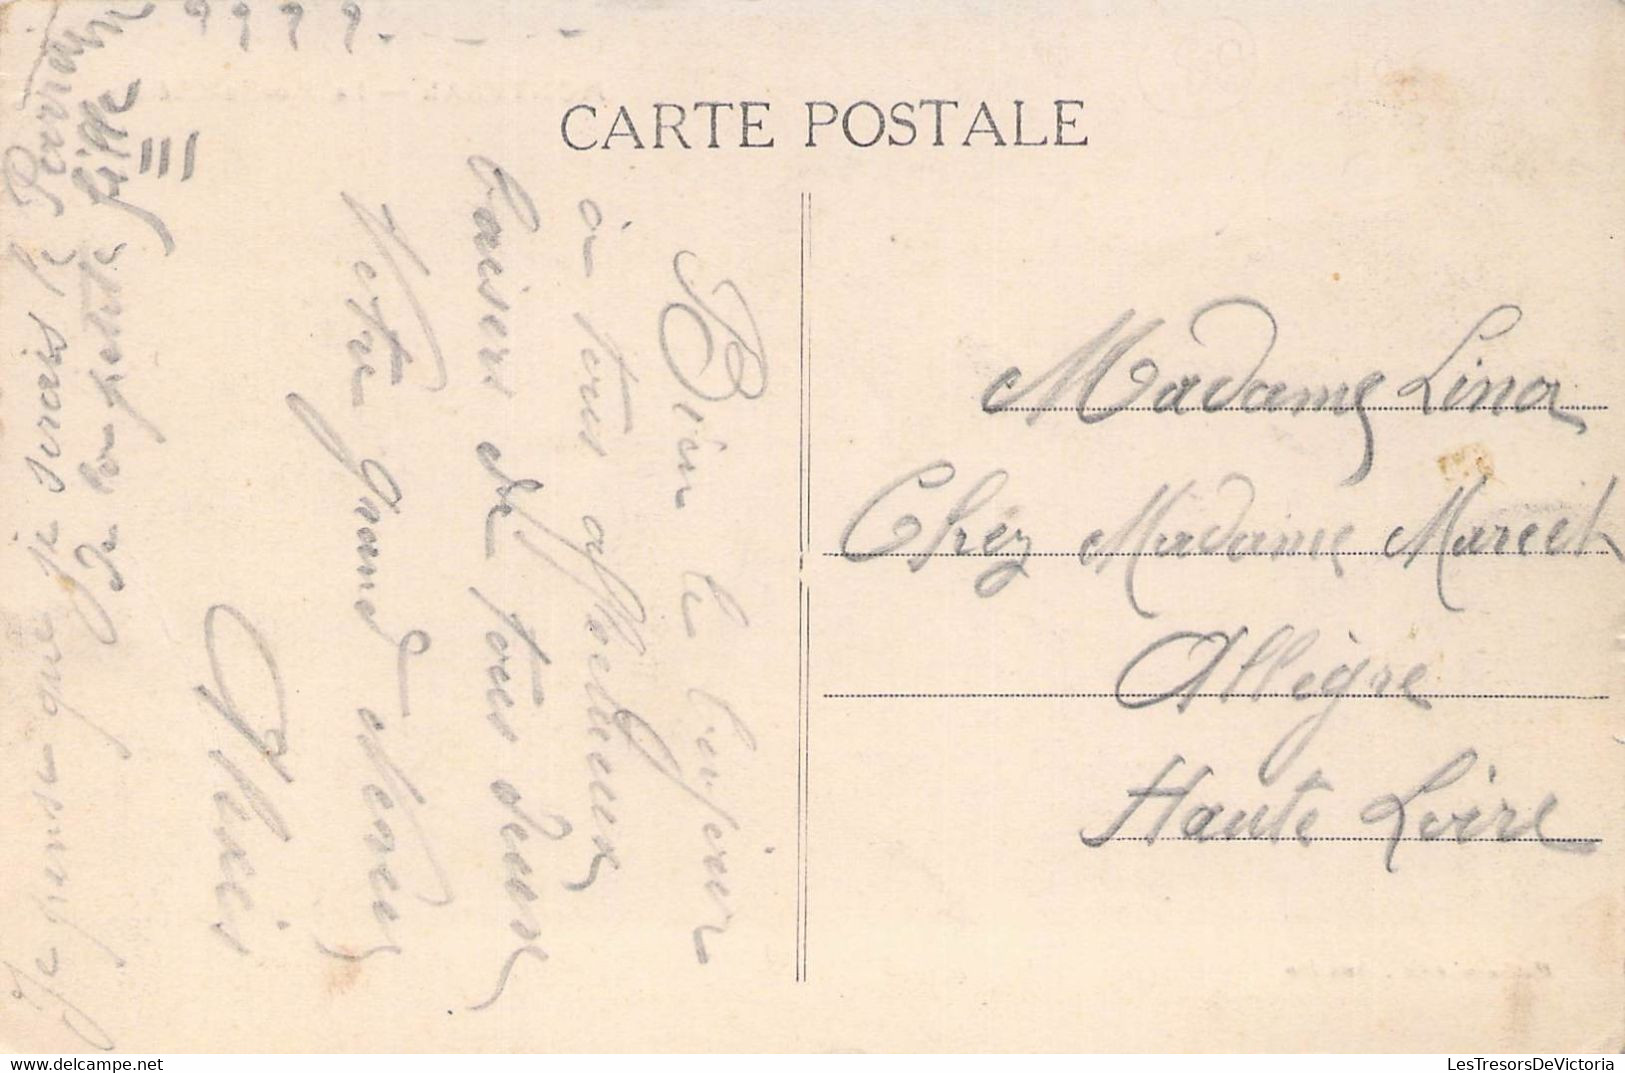 CARTE POSTALE
Bien le bonjour
à tous affectueux
baisers de tous deux
Votre grand
Alexis
Je pense que je serais le Parrain
de la petite fille !!!
? ? ? ? . - - - -
Madame Lina
Chéz Madame
Allègre
Haute Loire
LesTresorsDeVictoria